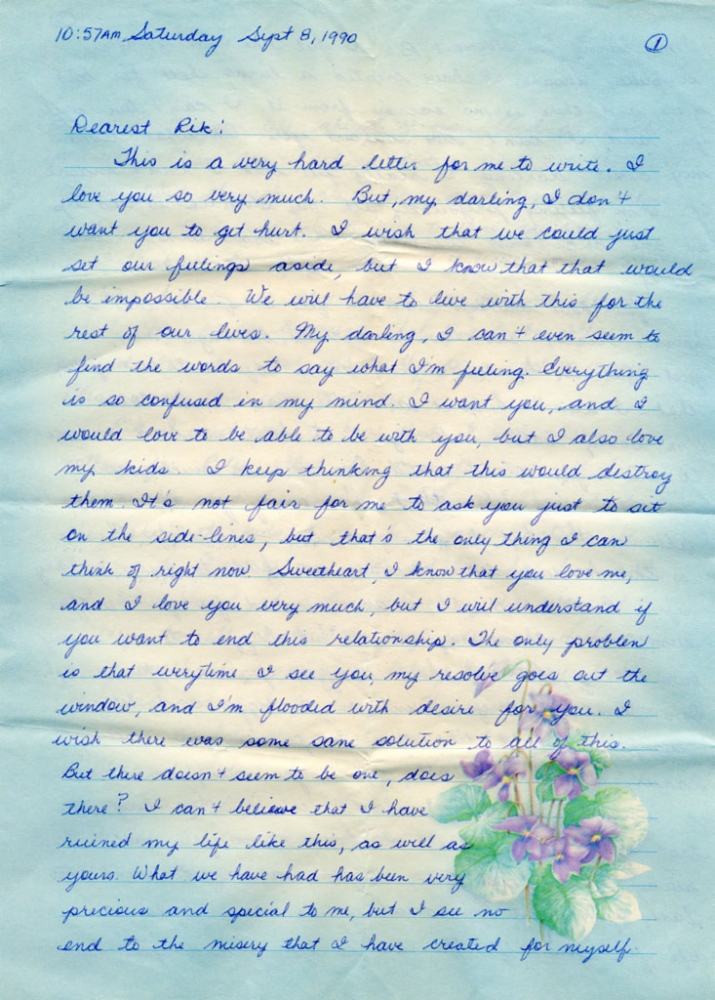 10:57AM Saturday Sept 8, 1990
1
Dearest Rik:
This is a very hard letter for me to write. I
love you so very much. But, my darling, I don't
want you to get hurt. I wish that we could just
set our feelings aside, but I know that that would
be impossible. We will have to live with this for the
rest of our lives. My darling, I can't even seem to
find the words to say what I'm feeling. Everything
is so confused in my mind. I want you, and I
would love to be able to be with you, but I also love
my kids. I keep thinking that this would destroy
them. It's not fair for me to ask you just to sit
on the side-lines, but that's the only thing I can
think of right now. Sweetheart, I know that you love me,
and I love you very much, but I will understand if
you want to end this relationship. The only problem
is that everytime I see you, my resolve goes out the
window, and I'm flooded with desire for you. I
wish there was some sane solution to all of this.
But there doesn't seem to be one, does
there? I can't believe that I have
ruined my life like this, as well as
yours. What we have had has been very
precious and special to me, but I see no
end to the misery that I have created for myself.